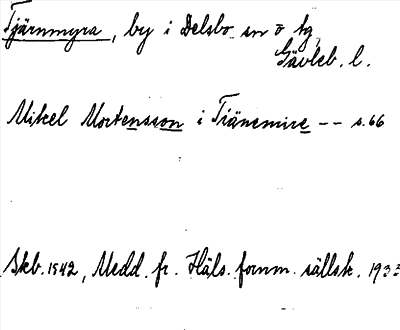 Tjärnmyra, by i Delsbo sn o tg
Gävleb. l.
Mikel Mortensson i Tiänemire -- s. 66
Skb. 1542, Medd. fr. Häls. fornm. sällsk. 1933